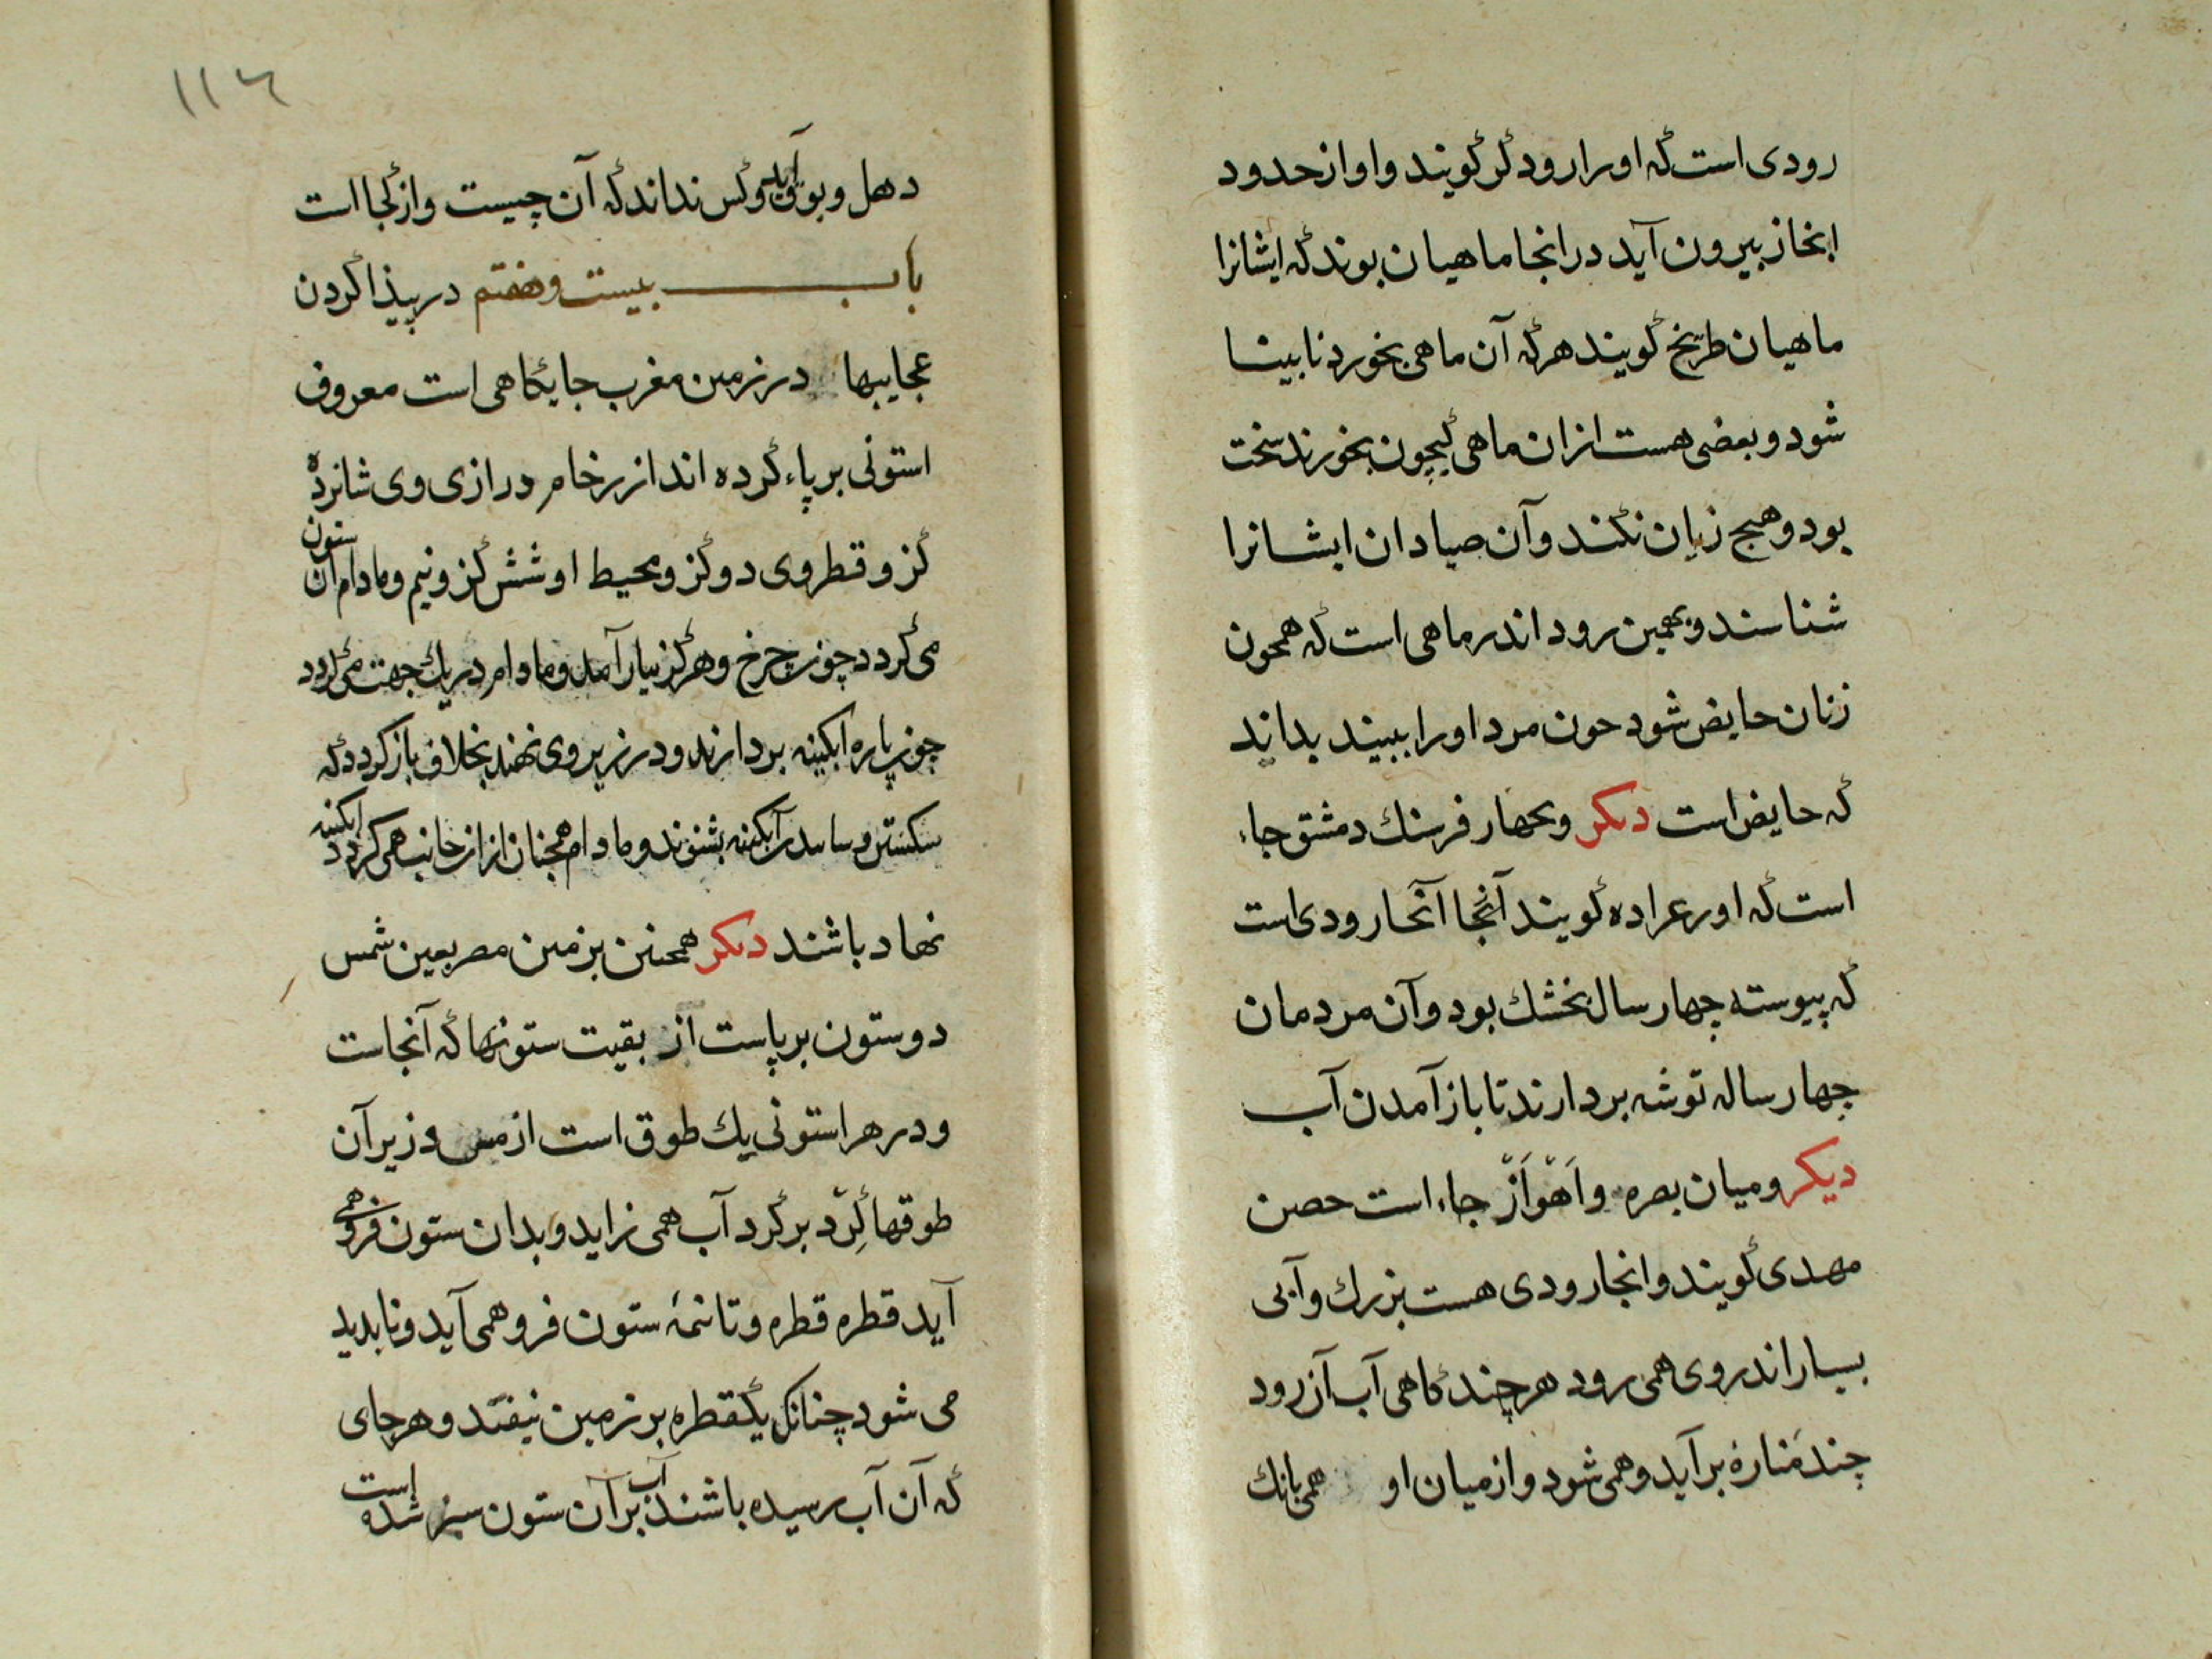 رودی است که اورا رود کر کویند و او از حدود
ابخاز بیرون آید در انجا ماهیان بوند که ایشانرا
ماهیان طریخ کویند هرکه آن ماهی بخورد نابینا
شود و بعضی هست ازان ماهی کیچون بخورند سخت
بود و هیج زیان نکند و آن صیادان ایشانرا
شناسند و بهمین رود اندر ماهی است که همحون
زنان حایض شود حون مرد اورا ببیند بداند
که حایض است دیکر و بحهار فرسنك دمشق جاء
است که اورعراده کویند آنجا آنحا رودی است
که پیوسته چهار سال بخشك بود و آن مردمان
چهار ساله توشه بردارند تا باز آمدن آب
دیکر و میان بصره و اَهْوَازْ جاء است حصن
مهدی کویند و انجا رودی هست بزرك و آبی
بسیار اندر وی همی رود هرچند کاهی آب آن رود
چند مَنارهٔ برآید و همی شود و از میان او همی بانك
۱۱۴
دهل و بوق آید و کس نداند که آن چیست و از کجا است
باب بیست و هفتم در پیذا کردن
عجایبها در زمین مغرب جایکاهی است معروف
استونی بر پاء کرده اند از رخام درازی وی شانزده
کز و قطر وی دو کز و محیط او شش کز و نیم و مادام آن ستون
می کردد چون چرخ و هرکز نیارآمد و مادام در یك جهت می کردد
چون پاره ابکینه بردارند و در زیر وی نهند بخلاف باز کردد که
سکستن و آبکینه بشنوند و مادام همجنان ازان جانب همی کردد ابکینه
نهاد باشند دیکر همحنین بزمین مصر بعین شمس
دو ستون برپاست از بقیت ستونها که آنجاست
و در هر استونی یك طوق است از مس و زیر آن
طوقها کِرْد بر کرد آب همی زاید و بدان ستون فرو همی
آید قطره قطره و تا نیمهٔ ستون فرو همی آید و نابدید
می شود چنانك یکقطره بر زمین نیفتد و هرجای
که آن آب رسیده باشند آب بر آن ستون سبز شده است